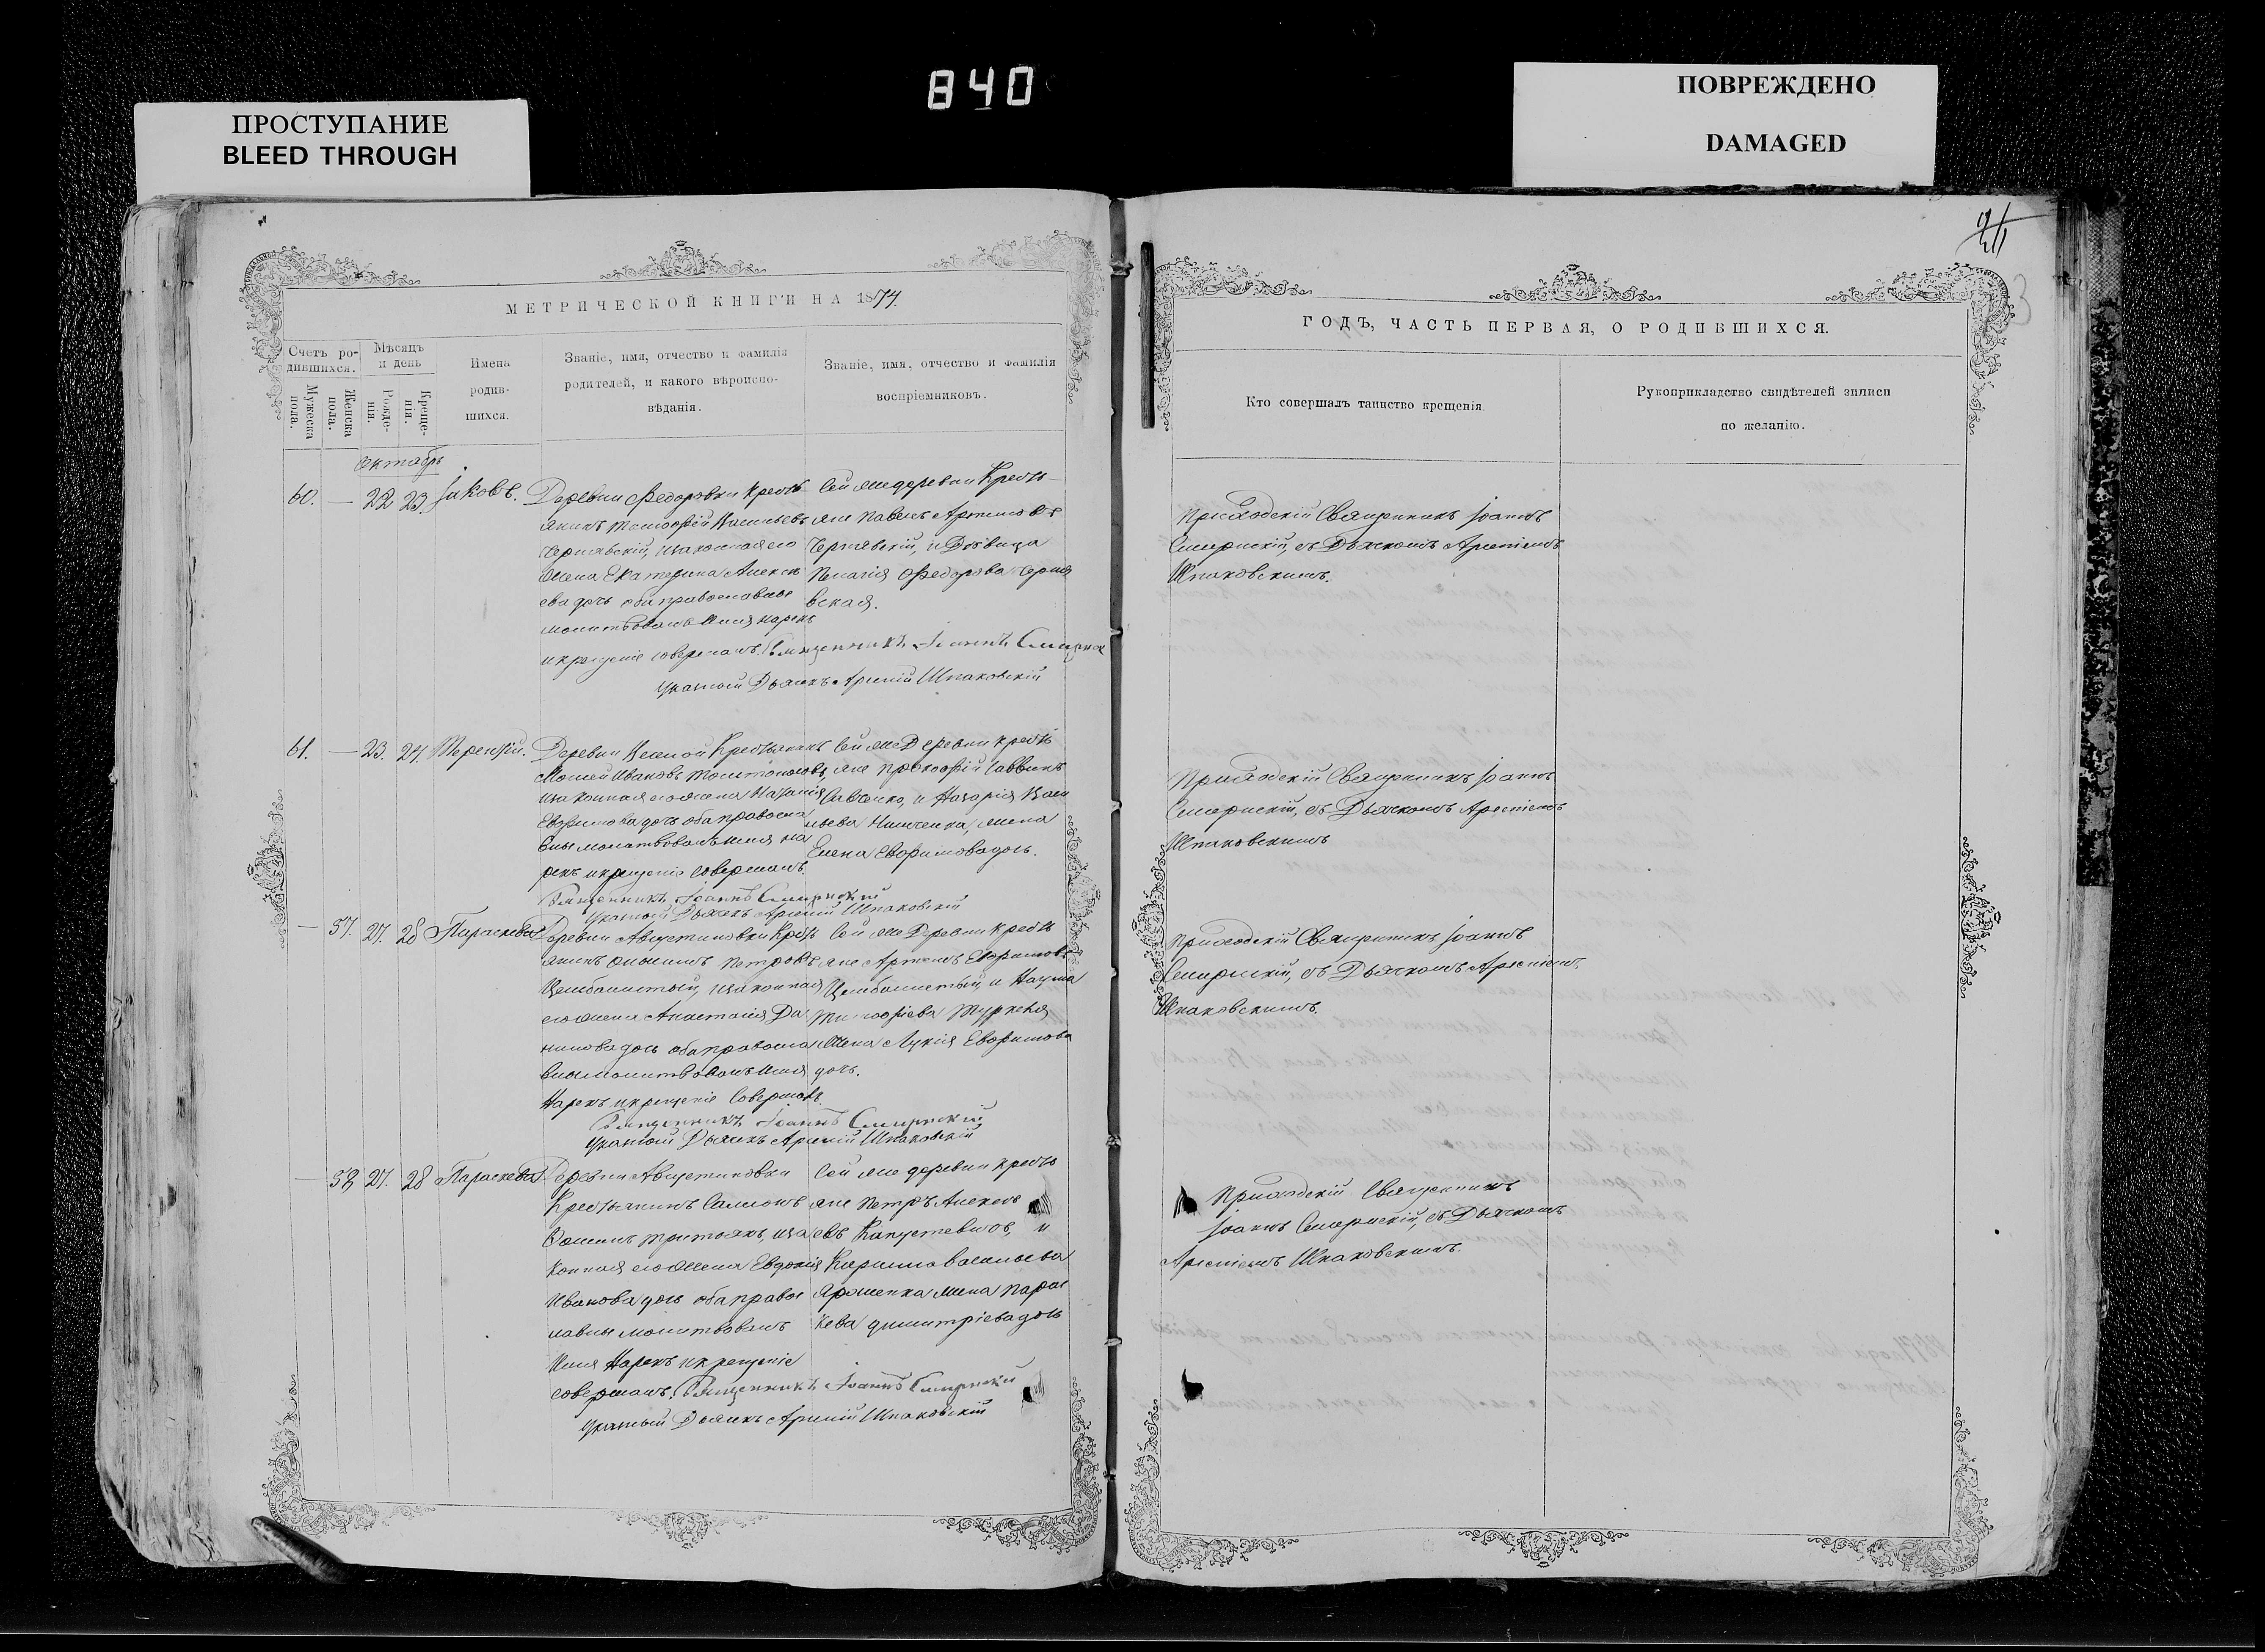 840
ПРОСТУПАНИЕ
BLEED THROUGH
ПОВРЕЖДЕНО
DAMAGED
МЕТРИЧЕСКОЙ КНИГИ НА 1874
Счетъ ро-
дившихся.
Мужеска пола.
Женска пола.
Мѣсяцъ
и день
Рожде-
нія.
Креще-
нія.
Имена
родив-
шихся.
Званіе, имя, отчество и фамилія
родителей, и какого вѣроиспо-
вѣданія.
Званіе, имя, отчество и фамилія
воспріемниковъ.
Октябрь
60. — 22 23. Іаковъ.
Деревни Федоровки Кресть
янинъ Тимофей Васильевъ
Чернявскій, законная его
жена Екатерина Алексѣ
ева дочь оба православные
молитвовалъ имя нарекъ
и крещеніе совершалъ. Священникъ Іоаннъ
Дьячекъ Арсеній Шпаковскій
Сей же деревни Кресть
яне Павелъ Артемовъ
Чернявскій, и Дѣвица
Пелагія Федорова Черня
вская.
61. — 23. 24. Терентій.
Крестьянинъ
Мойсей Ивановъ
законная его жена Наталія
Евфимова дочь оба правосла
вны молитвовалъ имя на
рекъ и крещеніе совершалъ
Священникъ Іоаннъ
Дьячекъ Арсеній Шпаковскій
Сей же Деревни Кресть
яне Прокофій Саввинъ
Савченко, и Назарія Васи
льева жена
Елена Евфимова дочь.
— 57. 27. 28 Параскева
Деревни Августиновки Кресть
янинъ Петровъ
Цымбалистый, законная
его жена Анастасія Да
нилова дочь оба правосла
вны молитвовалъ имя
Нарекъ и крещеніе Совершалъ
Священникъ Іоаннъ
Дьячекъ Арсеній Шпаковскій
Сей же Деревни Кресть
яне Артемъ Евфимовъ
Цымбалистый, и Наума
жена Лукія Евфимова
дочь.
— 58 27. 28 Параскева
Деревни Августиновки
Крестьянинъ Самсонъ
законная его жена Евдокія
Иванова дочь оба правос
лавны молитвовалъ
имя Нарекъ и крещеніе
совершалъ. Священникъ Іоаннъ
Дьячекъ Арсеній Шпаковскій
Сей же деревни кресть
яне Петръ Алексѣ
евъ и
Кирилла Васильева
жена Парас
кева Димитріева дочь
ГОДЪ, ЧАСТЬ ПЕРВАЯ, О РОДИВШИХСЯ.
Кто совершалъ таинство крещенія.
Рукоприкладство свидѣтелей записи
по желанію.
Приходскій Священникъ Іоаннъ
съ Дьячкомъ Арсеніемъ
Шпаковскимъ.
Приходскій Священникъ Іоаннъ
съ Дьячкомъ Арсеніемъ
Шпаковскимъ
Приходскій Священникъ Іоаннъ
съ Дьячкомъ Арсеніемъ
Шпаковскимъ.
Приходскій Священникъ
Іоаннъ съ Дьячкомъ
Арсеніемъ Шпаковскимъ.